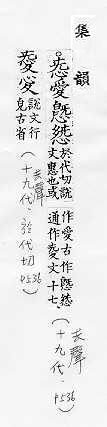 集韻
㤅愛𢟪 於代切說
文惠也或
作愛古作𢟪
通作㤅文十七
(去聲十九代.p536)
愛 說文行
皃古省
(去聲十九代.於代切p536)